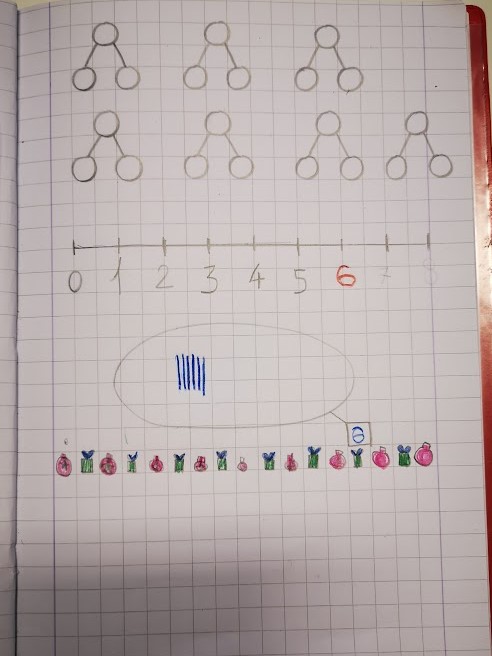 0 1 2 3 4 5 6
6